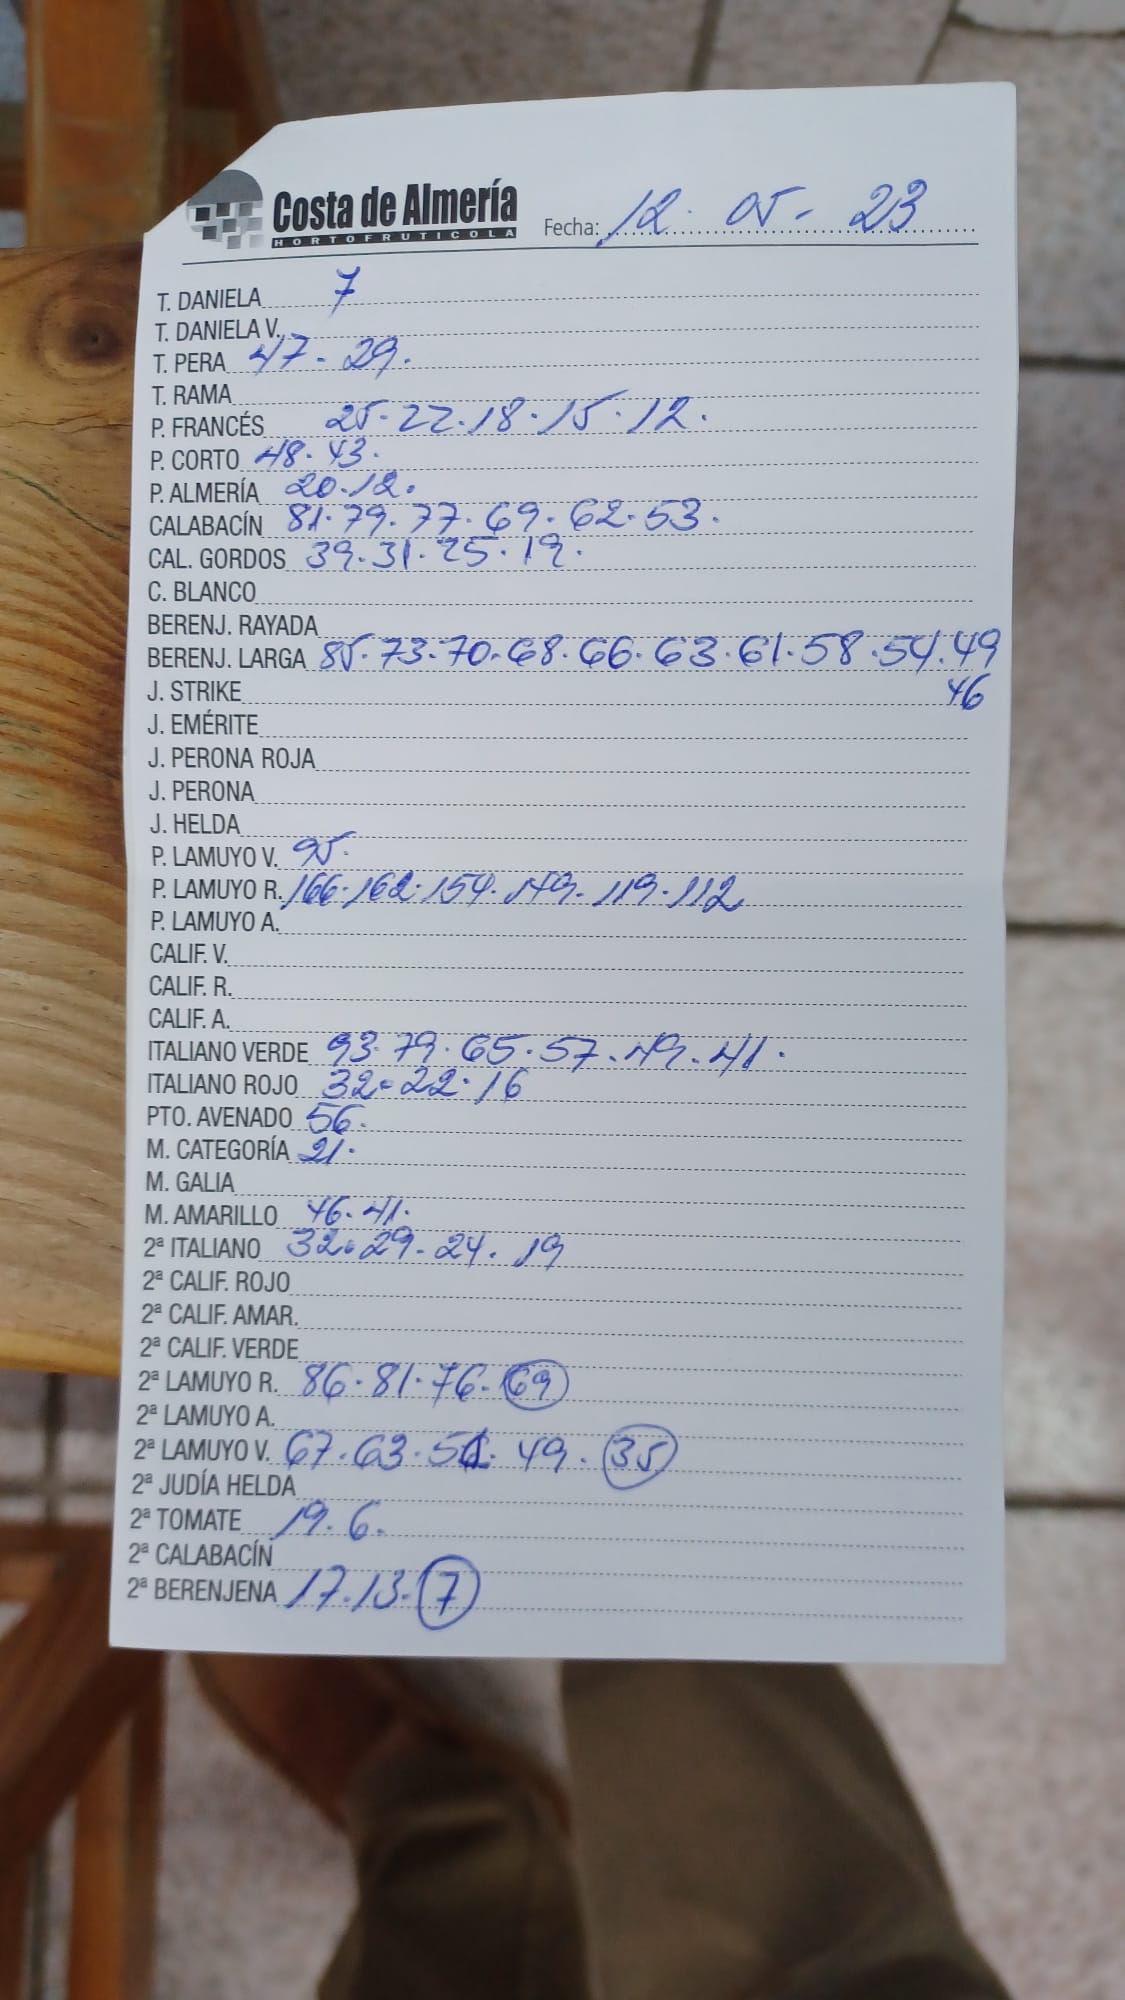 Costa de Almería
HORTOFRUTICOLA
Fecha: 12. 05 - 23
T. DANIELA 7
T. DANIELA V.
T. PERA 47 - 29.
T. RAMA
P. FRANCÉS 25 - 22 . 18 . 15 . 12 .
P. CORTO 48 . 43 .
P. ALMERÍA 20 . 12 .
CALABACÍN 81 . 79 . 77 . 69 . 62 . 53 .
CAL. GORDOS 39 . 31 . 25 . 19 .
C. BLANCO
BERENJ. RAYADA
BERENJ. LARGA 85 . 73 . 70 . 68 . 66 . 63 . 61 . 58 . 54 . 49
J. STRIKE 46
J. EMÉRITE
J. PERONA ROJA
J. PERONA
J. HELDA
P. LAMUYO V. 95 .
P. LAMUYO R. 166 . 162 . 154 . 149 . 119 . 112
P. LAMUYO A.
CALIF. V.
CALIF. R.
CALIF. A.
ITALIANO VERDE 93 . 79 . 65 . 57 . 49 . 41 .
ITALIANO ROJO 32 - 22 . 16
PTO. AVENADO 56 .
M. CATEGORÍA 21 .
M. GALIA
M. AMARILLO 46 . 41 .
2ª ITALIANO 32 . 29 - 24 . 19
2ª CALIF. ROJO
2ª CALIF. AMAR.
2ª CALIF. VERDE
2ª LAMUYO R. 86 . 81 . 76 . 69
2ª LAMUYO A.
2ª LAMUYO V. 67 . 63 . 49 . 35
2ª JUDÍA HELDA
2ª TOMATE 19 . 6 .
2ª CALABACÍN
2ª BERENJENA 17 . 13 . 7